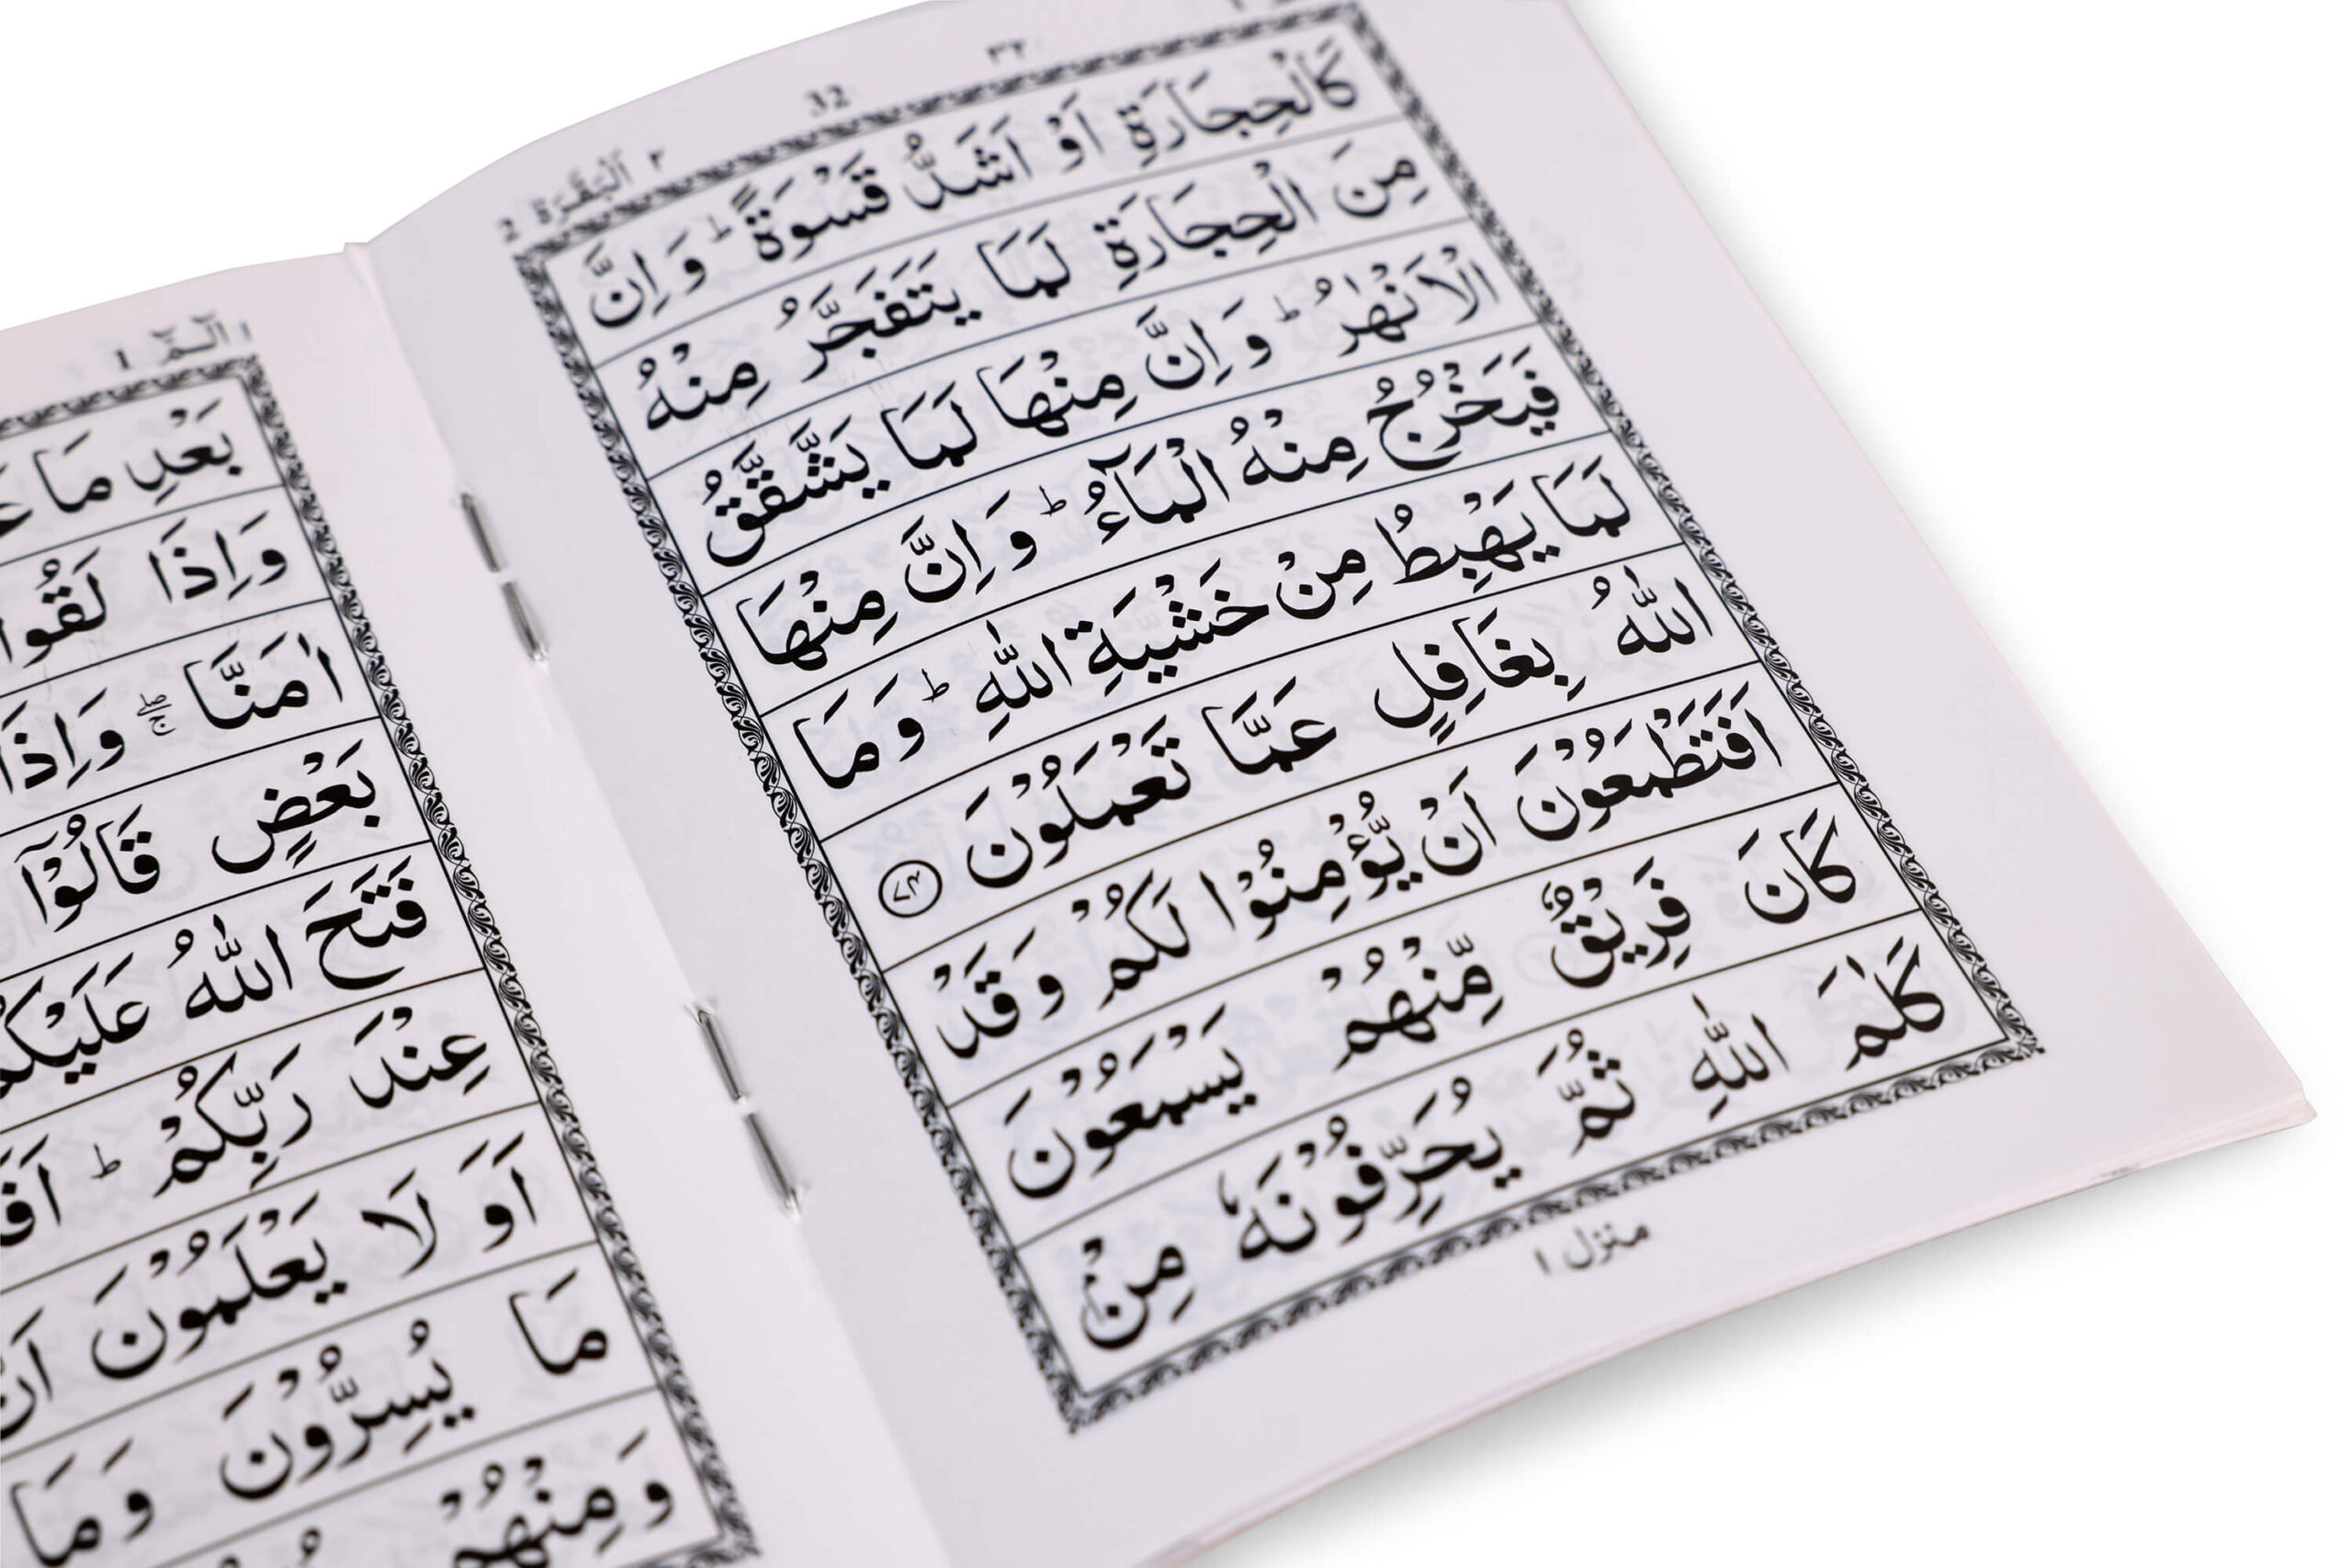 ٣٢
32
٢ اَلْبَقَرَة 2
كَالْحِجَارَةِ اَوْ اَشَدُّ قَسْوَةً ؕ وَ اِنَّ
مِنَ الْحِجَارَةِ لَمَا يَتَفَجَّرُ مِنْهُ
الْاَنْهٰرُ ؕ وَ اِنَّ مِنْهَا لَمَا يَشَّقَّقُ
فَيَخْرُجُ مِنْهُ الْمَآءُ ؕ وَ اِنَّ مِنْهَا
لَمَا يَهْبِطُ مِنْ خَشْيَةِ اللّٰهِ ؕ وَ مَا
اللّٰهُ بِغَافِلٍ عَمَّا تَعْمَلُوْنَ ﴿۷۴﴾
اَفَتَطْمَعُوْنَ اَنْ يُّؤْمِنُوْا لَكُمْ وَ قَدْ
كَانَ فَرِيْقٌ مِّنْهُمْ يَسْمَعُوْنَ
كَلٰمَ اللّٰهِ ثُمَّ يُحَرِّفُوْنَهٗ مِنْ
منزل ١
١ الٓمّٓ 1
بَعْدِ مَا
وَ اِذَا لَقُوا
اٰمَنَّا ۖۚ وَ اِذَا
بَعْضٍ قَالُوْۤا
فَتَحَ اللّٰهُ عَلَيْكُمْ
عِنْدَ رَبِّكُمْ ؕ
اَوَ لَا يَعْلَمُوْنَ
مَا يُسِرُّوْنَ وَ مَا
وَ مِنْهُمْ